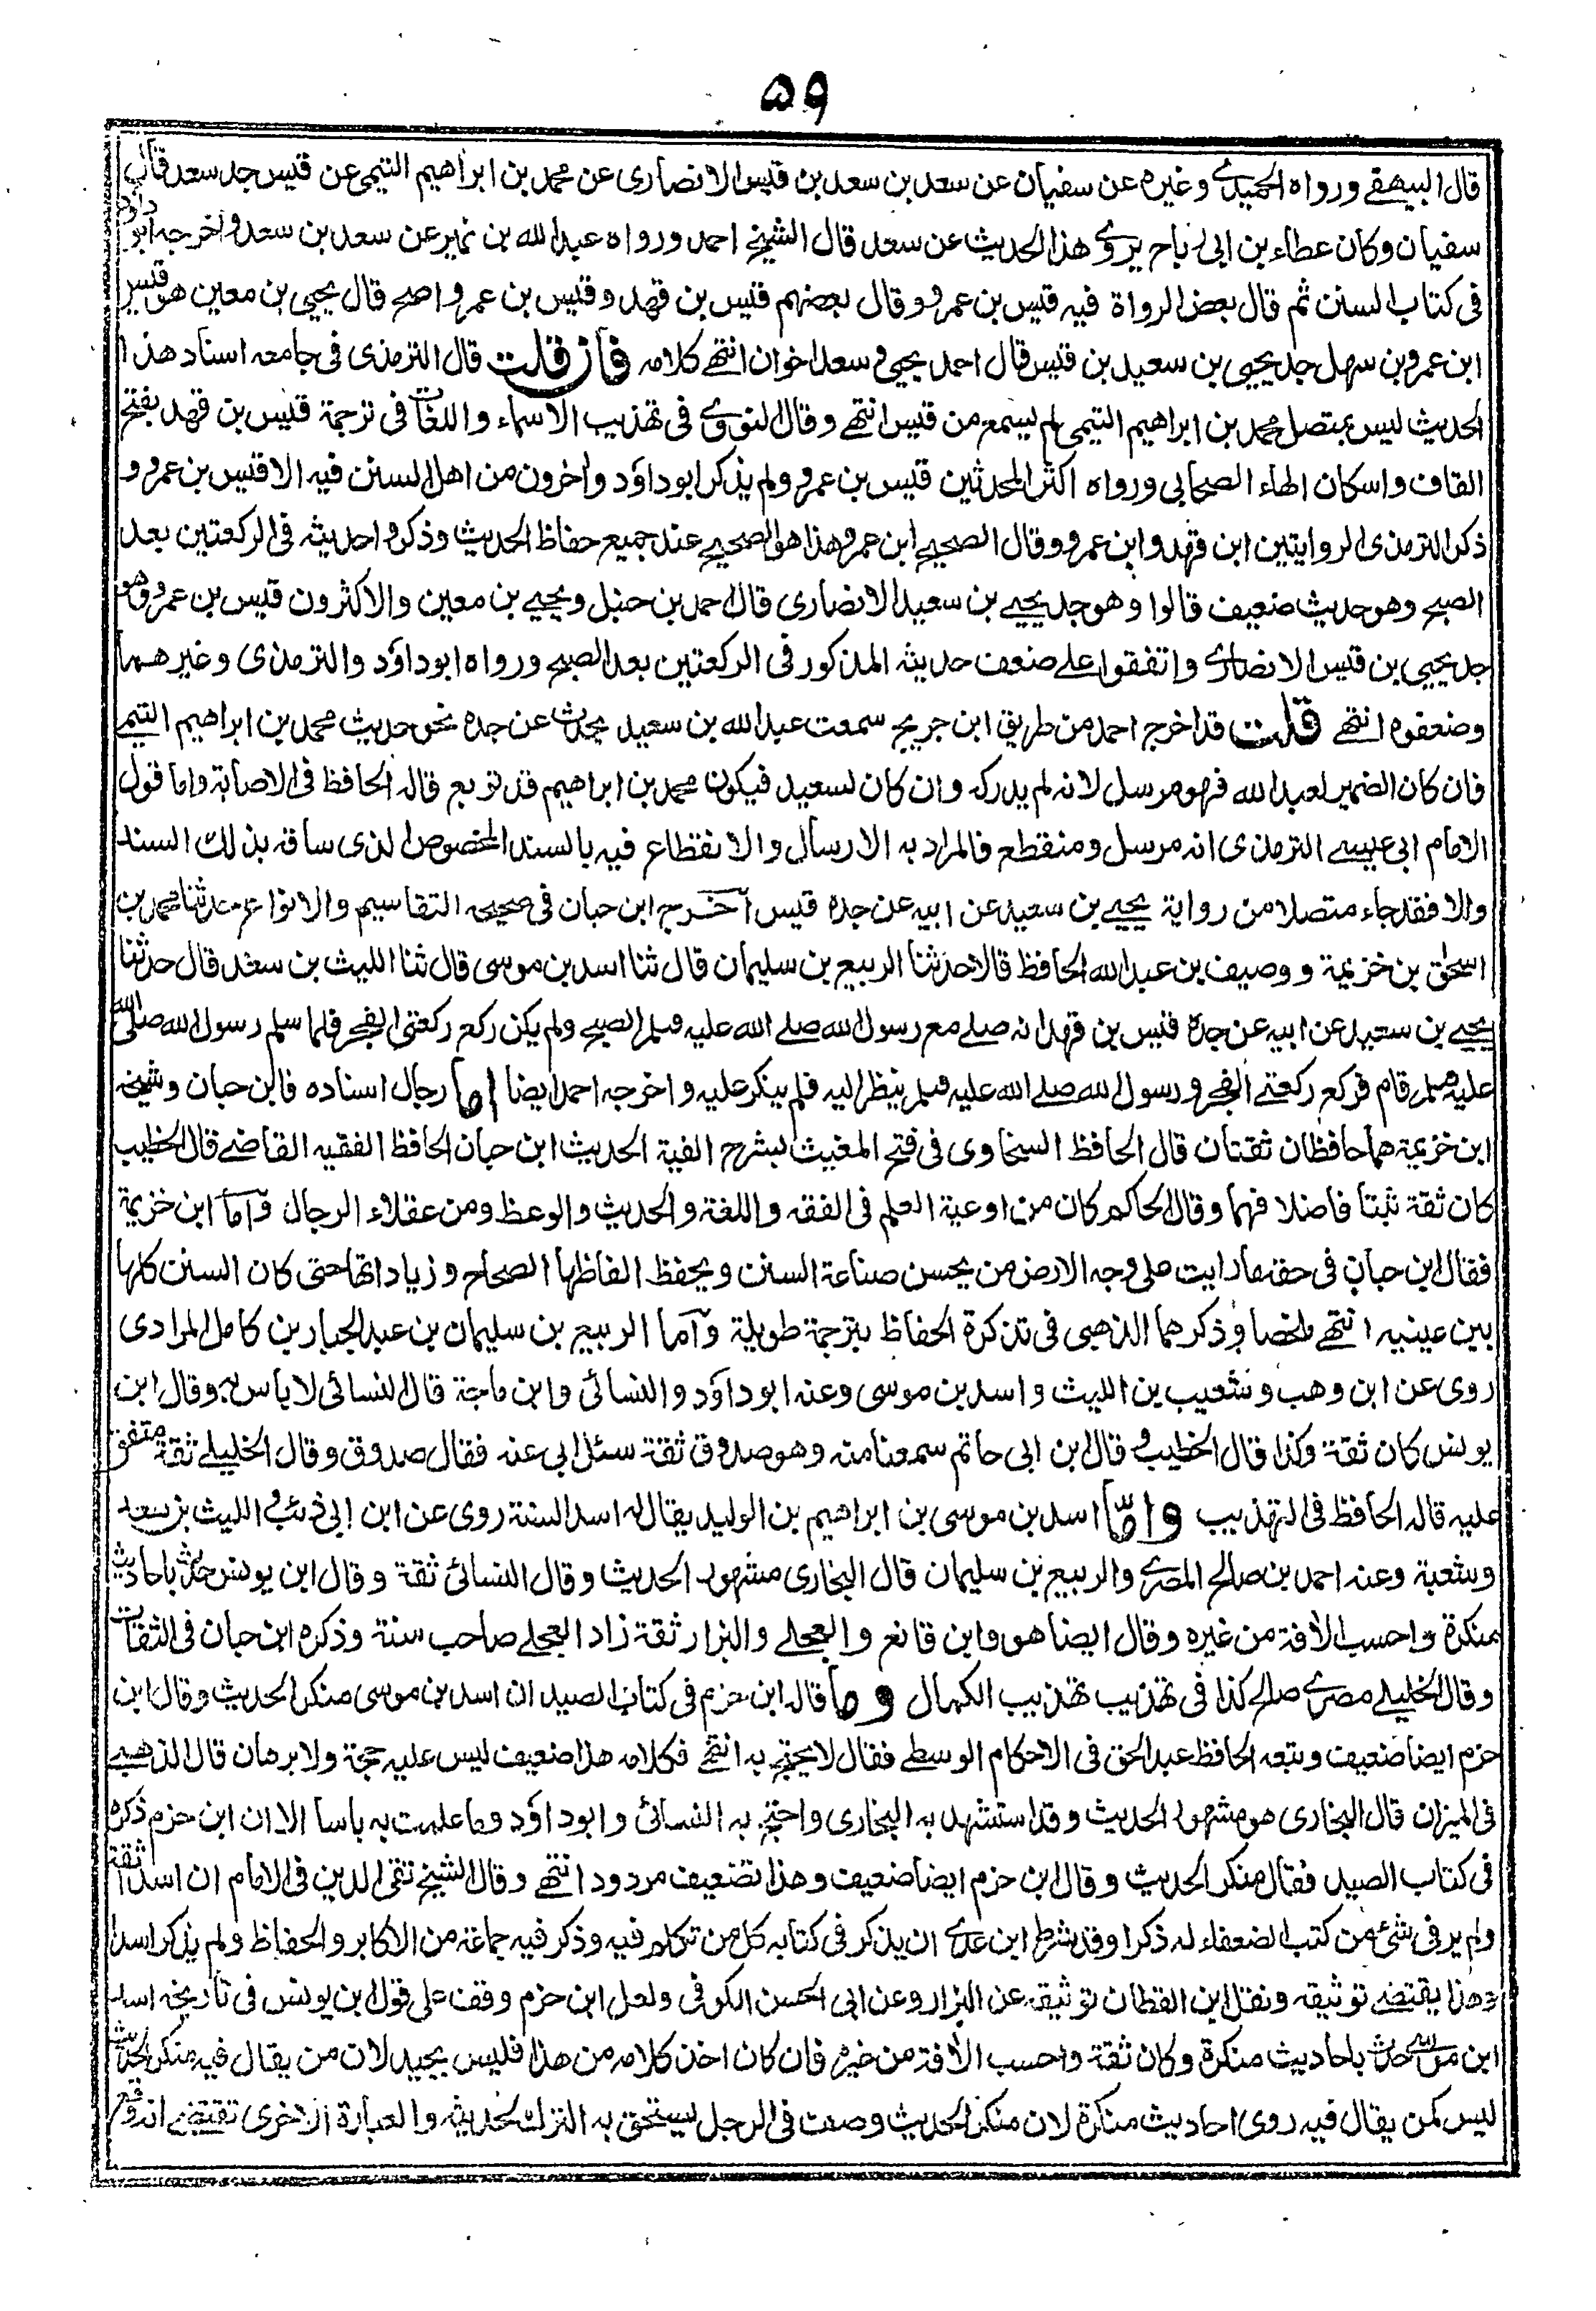 ٥٩
قال البيهقے ورواه الحميدے وغيره عن سفيان عن سعد بن سعد بن قيس الانصارى عن محمد بن ابراهيم التيمى عن قيس جد سعد قال
سفيان وكان عطاء بن ابى رباح يروے هذا الحديث عن سعد قال الشيخ احمد ورواه عبد الله بن نمير عن سعد بن سعد واخرجه ابو داؤد
فى كتاب السنن ثم قال بعض الرواة فيه قيس بن عمرو وقال بعضهم قيس بن قهد وقيس بن عمرو اصح قال يحيى بن معين هو قيس
ابن عمرو بن سهل جد يحيى بن سعيد بن قيس قال احمد يحيى و سعد اخوان انتهے كلامه فان قلت قال الترمذى فى جامعه اسناد هذا
الحديث ليس بمتصل محمد بن ابراهيم التيمى لم يسمع من قيس انتهے وقال النووے فى تهذيب الاسماء واللغات فى ترجمة قيس بن قهد بفتح
القاف واسكان الهاء الصحابى ورواه اكثر المحدثين قيس بن عمرو ولم يذكر ابوداؤد واخرون من اهل السنن فيه الا قيس بن عمرو و
ذكر الترمذى الروايتين ابن قهد وابن عمرو وقال الصحيح ابن عمرو هذا هو الصحيح عند جميع حفاظ الحديث وذكروا حديثه فى الركعتين بعد
الصبح وهو حديث ضعيف قالوا وهو جد يحيے بن سعيد الانصارى قال احمد بن حنبل ويحيے بن معين والاكثرون قيس بن عمرو هو
جد يحيى بن قيس الانصارے واتفقوا علے ضعف حديثه المذكور فى الركعتين بعد الصبح ورواه ابوداؤد والترمذى وغيرهما
وضعفوه انتهے قلت قد اخرج احمد من طريق ابن جريج سمعت عبد الله بن سعيد يحدث عن جده نحو حديث محمد بن ابراهيم التيمے
فان كان الضمير لعبد الله فهو مرسل لانه لم يدركه وان كان لسعيد فيكون محمد بن ابراهيم قد توبع قاله الحافظ فى الاصابة واما قول
الامام ابى عيسے الترمذى انه مرسل ومنقطع فالمراد به الارسال والانقطاع فيه بالسند المخصوص الذى ساقه بذلك السند
والا فقد جاء متصلا من رواية يحيے بن سعيد عن ابيه عن جده قيس آخرج ابن حبان فى صحيحه التقاسيم والانواع حدثنا محمد بن
اسحاق بن خزيمة و وصيف بن عبد الله الحافظ قالا حدثنا الربيع بن سليمان قال ثنا اسد بن موسى قال ثنا الليث بن سعد قال حدثنا
يحيے بن سعيد عن ابيه عن جده قيس بن قهد انه صلے مع رسول الله صلے الله عليه وسلم الصبح ولم يكن ركع ركعتى الفجر فلما سلم رسول الله صلى الله
عليه وسلم قام فركع ركعتے الفجر ورسول الله صلے الله عليه وسلم ينظر اليه فلم ينكر عليه واخرجه احمد ايضا اما رجال اسناده فابن حبان وشيخه
ابن خزيمة هما حافظان ثقتان قال الحافظ السخاوى فى فتح المغيث بشرح الفية الحديث ابن حبان الحافظ الفقيه القاضے قال الخطيب
كان ثقة ثبتا فاضلا فهما وقال الحاكم كان من اوعية العلم فى الفقه واللغة والحديث والوعظ ومن عقلاء الرجال وآما ابن خزيمة
فقال ابن حبان فى حقه ما رايت على وجه الارض من يحسن صناعة السنن ويحفظ الفاظها الصحاح وزياداتها حتى كان السنن كلها
بين عينيه انتهے ملخصا وذكرهما الذهبى فى تذكرة الحفاظ بترجمة طويلة وآما الربيع بن سليمان بن عبد الجبار بن كامل المرادى
روى عن ابن وهب وشعيب بن الليث واسد بن موسى وعنه ابوداؤد والنسائى وابن ماجة قال النسائى لا باس به وقال ابن
يونس كان ثقة وكذا قال الخطيب و قال ابن ابى حاتم سمعنا منه وهو صدوق ثقة سئل ابى عنه فقال صدوق وقال الخليلے ثقة متفق
عليه قاله الحافظ فى التهذيب واما اسد بن موسى بن ابراهيم بن الوليد يقال له اسد السنة روى عن ابن ابى ذئب و الليث بن سعد
وشعبة وعنه احمد بن صالح المصرے والربيع بن سليمان قال البخارى مشهور الحديث وقال النسائى ثقة وقال ابن يونس حدث باحاديث
منكرة واحسب الآفة من غيره وقال ايضا هو وابن قانع والعجلے والبزار ثقة زاد العجلے صاحب سنة وذكره ابن حبان فى الثقات
وقال الخليلے مصرے صالح كذا فى تهذيب تهذيب الكمال وما قاله ابن حزم فى كتاب الصيد ان اسد بن موسى منكر الحديث وقال ابن
حزم ايضا ضعيف وتبعه الحافظ عبد الحق فى الاحكام الوسطے فقال لا يحتج به انتهے فكلامه هذا ضعيف ليس عليه حجة ولا برهان قال الذهبے
فى الميزان قال البخارى هو مشهور الحديث وقد استشهد به البخارى واحتج به النسائى وابوداؤد وما علمت به باسا الا ان ابن حزم ذكره
فى كتاب الصيد فقال منكر الحديث وقال ابن حزم ايضا ضعيف وهذا تضعيف مردود انتهے وقال الشيخ تقى الدين فى الامام ان اسدا ثقة
ولم ير فى شئ من كتب الضعفاء له ذكرا وقد شرط ابن عدے ان يذكر فى كتابه كل من تكلم فيه وذكر فيه جماعة من الاكابر والحفاظ ولم يذكر اسدا
وهذا يقتضے توثيقه ونقل ابن القطان توثيقه عن البزار وعن ابى الحسن الكوفى ولعل ابن حزم وقف على قول ابن يونس فى تاريخه اسد
ابن موسى حدث باحاديث منكرة وكان ثقة واحسب الآفة من غيره فان كان اخذ كلامه من هذا فليس بجيد لان من يقال فيه منكر الحديث
ليس كمن يقال فيه روى احاديث منكرة لان منكر الحديث وصف فى الرجل يستحق به الترك لحديثه والعبارة الاخرى تقتضے انه وقع